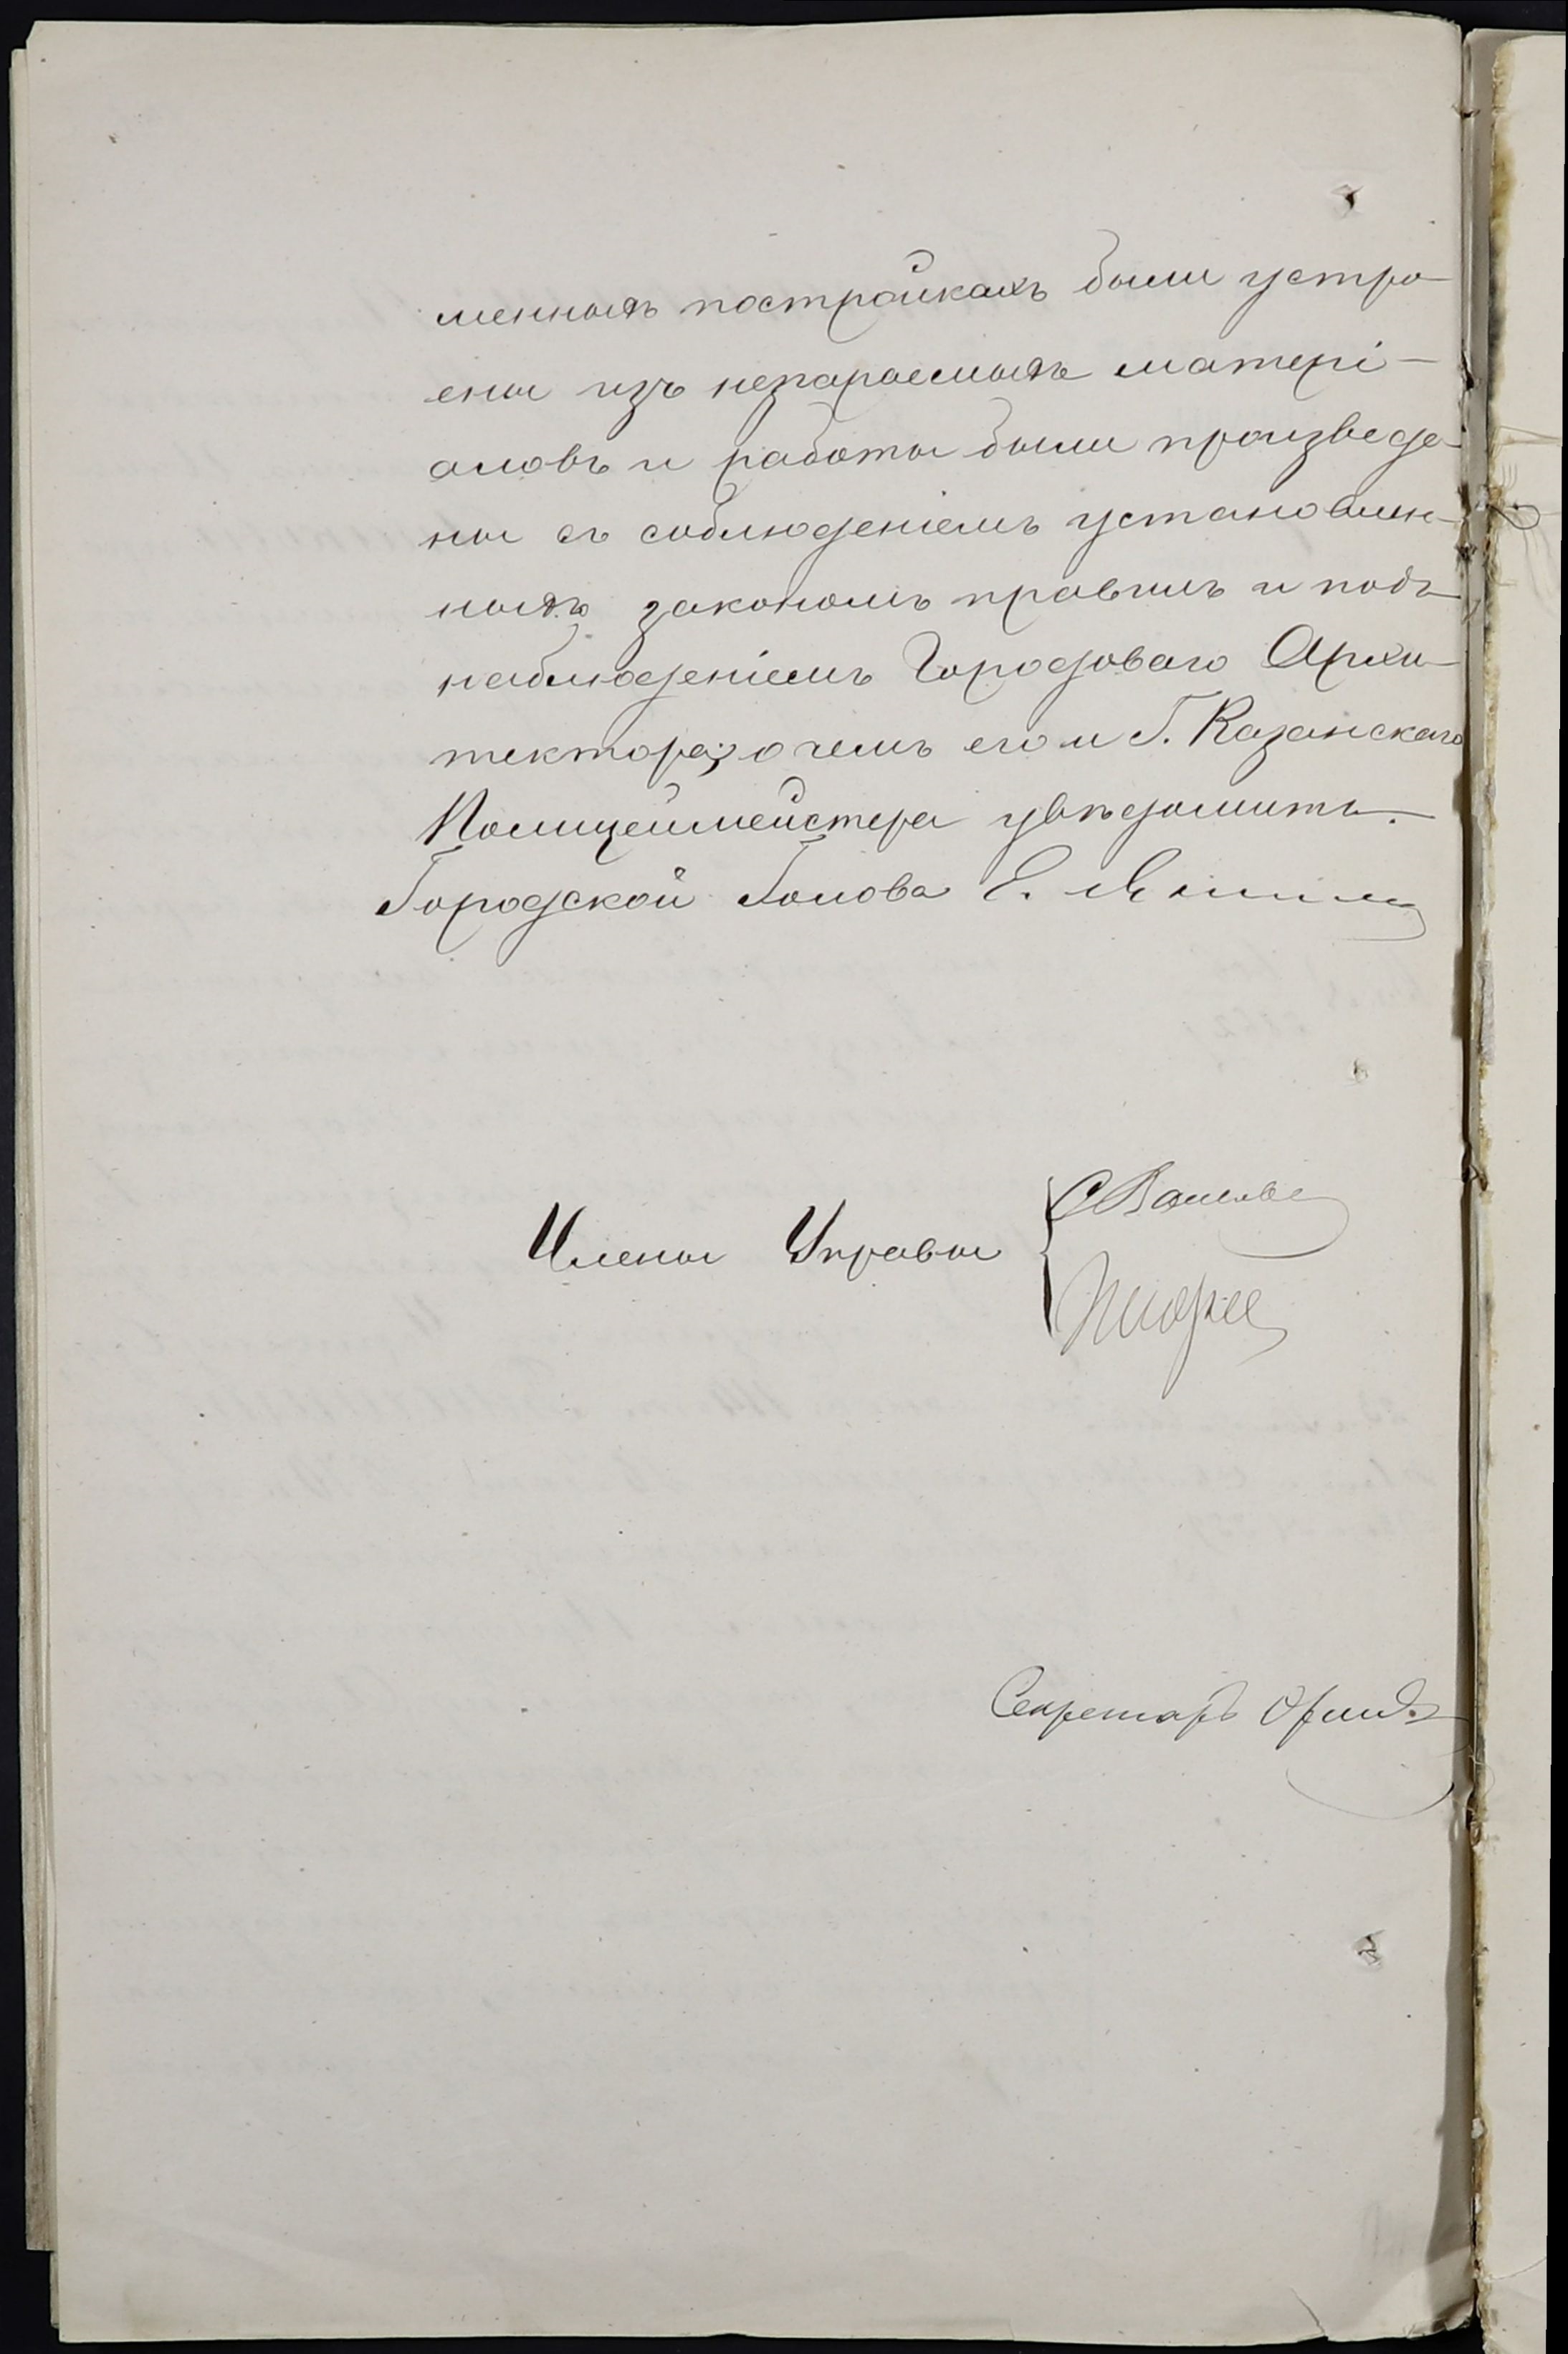 менныхъ постройкахъ были устро-
ены изъ несгараемыхъ матері-
аловъ и работы были произведе-
ны съ соблюденіемъ установлен-
ныхъ закономъ правилъ и подъ
наблюденіемъ Городоваго Архи-
тектора; о чемъ его и Г. Казанскаго
Полицеймейстера увѣдомить.
Городской Голова Е.
Члены Управы
Секретарь